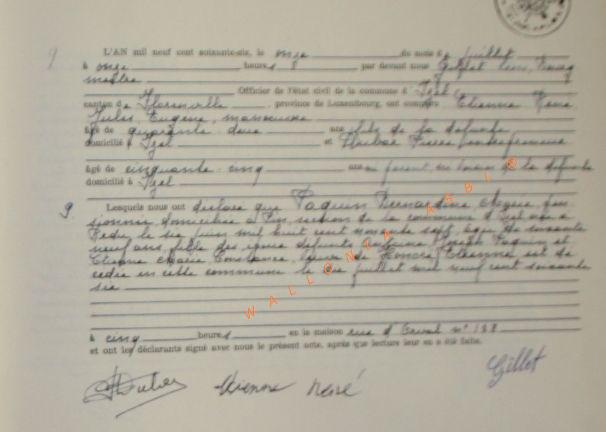 9
L'AN mil neuf cent soixante-six, le onze du mois de juillet
à onze heures par devant nous Gillet
Officier de l'état civil de la commune d' Izel
canton de Florenville, province de Luxembourg, ont comparu Etienne René
Jules, Eugène, manoeuvre
âgé de quarante deux ans fils de la défunte
domicilié à Izel et Hubar Pierre
âgé de cinquante cinq ans ni parent, ni voisin de la défunte
domicilié à Izel
9. Lesquels nous ont déclaré que Paquin Bernardine
sionnée, domiciliée à Pin, section de la commune d'Izel née à
le six juin mil huit cent nonante sept, âgée de soixante
neuf ans, fille des époux défunts Antoine Joseph Paquin et
Etienne Marie Constance, veuve de Honoré Etienne est dé
cédée en cette commune le dix juillet mil neuf cent soixante
six
WALLONIA ASBL ©
à cinq heures en la maison rue d'Orval n° 138
et ont les déclarants signé avec nous le présent acte, après que lecture leur en a été faite.
Hubar Etienne René Gillet